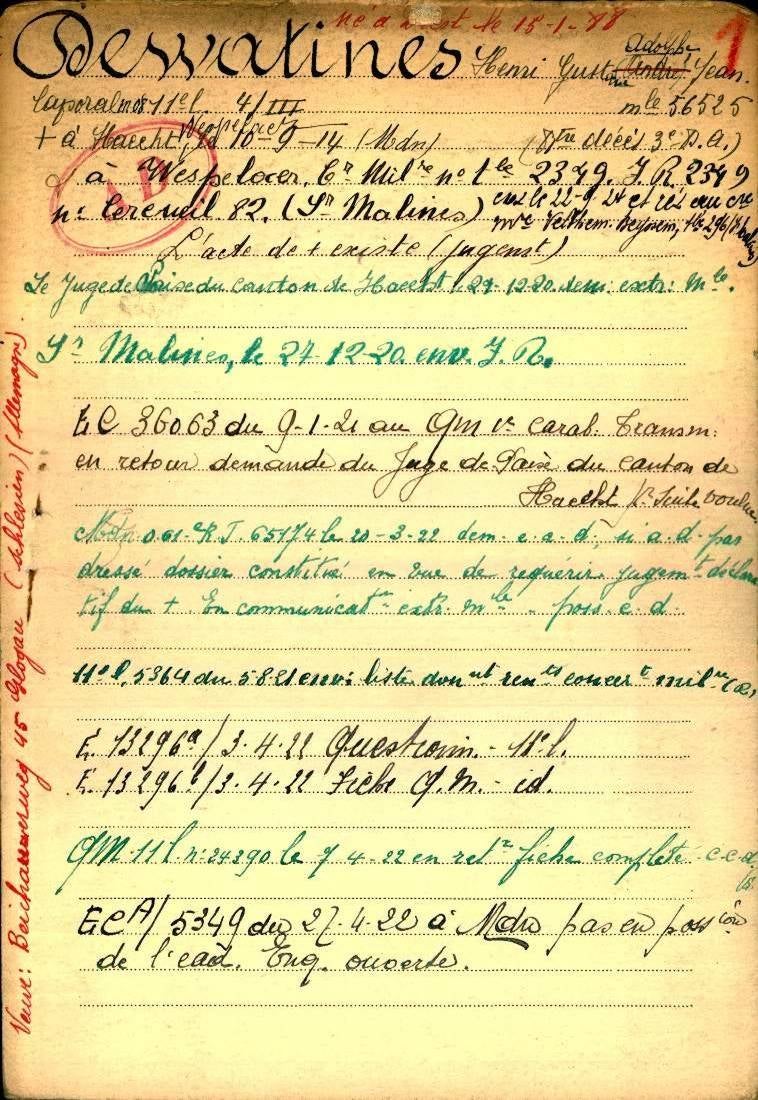 né à le 15-1-88
1
Dessatines Henri Gustave Adolphe Jean.
Caporal 11e l. 4/III mle 56525
+ à Haecht, Wespelaer id 10-9-14 (Mdn) (décès 3e D.A.)
à Wespelaer, Cre Milre no tbe 2349. J. R. 2349
no Cercueil 82. (Sr Malines) le 22-9-24 et au cre
mre Velthem-Beyssem, tbe 296
L'acte de + existe (jugemt)
Le Juge de Paix du canton de Haecht 29-12-20 dem. extr. mle.
Sr Malines, le 27-12-20 env. J. R.
E C 36063 du 9-1-21 au QM 1r Carab. Transm.
en retour demande du Juge de Paix du canton de
Haecht pr Suite voulue
Mdn 061- R.J. 65174 le 20-3-22 dem. e-a-d, si a.d. pas
dressé dossier constitué en vue de requérir jugemt déclara
tif du +. En communicatn extr. mle. poss. e.d.
11e l. 5364 du 5.8.21 env. liste donnt rents concert milre (R)
E. 13296a/3.4.22 Questionn. - 11e l.
E. 13296b/3.4.22 Fiche Q.M. - id.
QM. 11 l. no 24390 le 7 4-22 en retr fiche complétée c.c.d.
ECA/5349 du 27-4-22 à Mdn pas en possion
de l'ead. Enq. ouverte.
Veuve: 45 Glogau (Schlesien) (Allemagne)